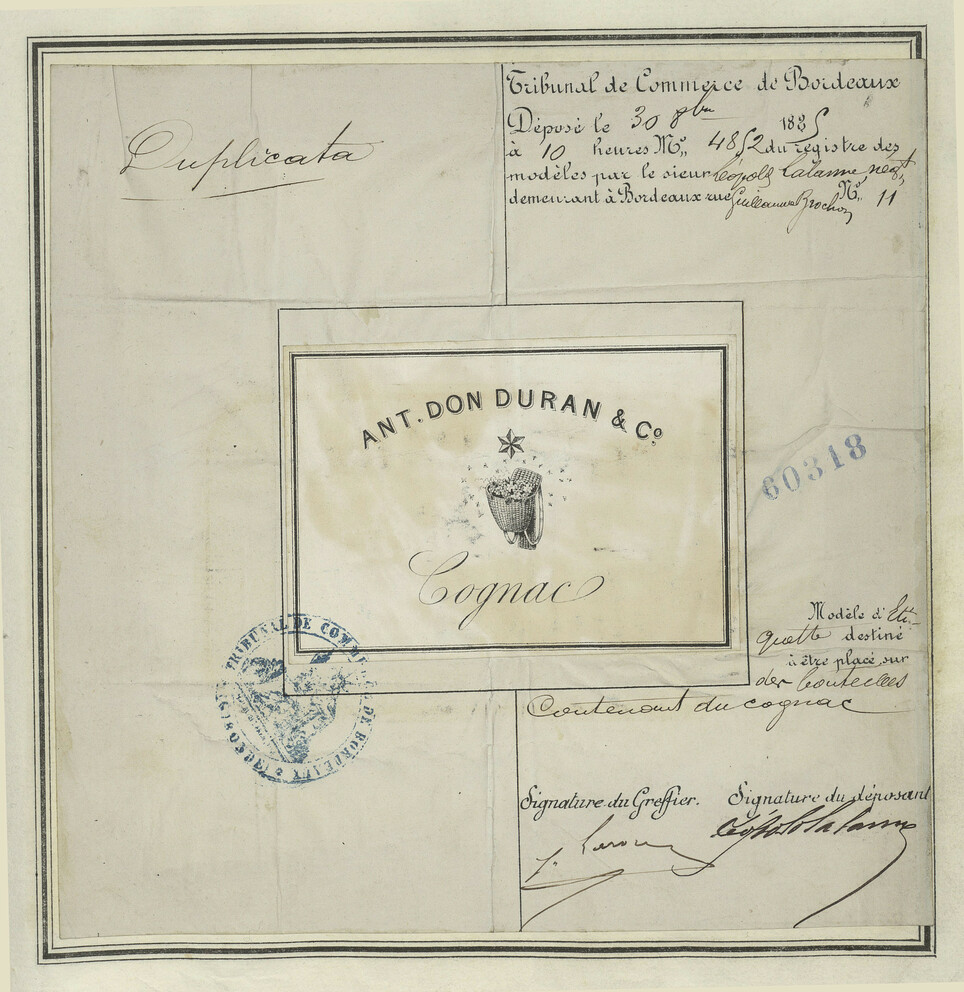 Duplicata
Tribunal de Commerce de Bordeaux
Déposé le 30 8bre 1885
à 10 heures No. 4852 du registre des
modèles par le sieur Léopold Lalanne, négt,
demeurant à Bordeaux rue Guillaume Brochon No. 11
ANT. DON DURAN & Co.
Cognac
60318
Modèle d'Eti-
quette destiné
à être placé sur
des bouteilles
Contenant du cognac
TRIBUNAL DE COMMERCE DE BORDEAUX
Signature du Greffier. Signature du déposant
Léopold Lalanne